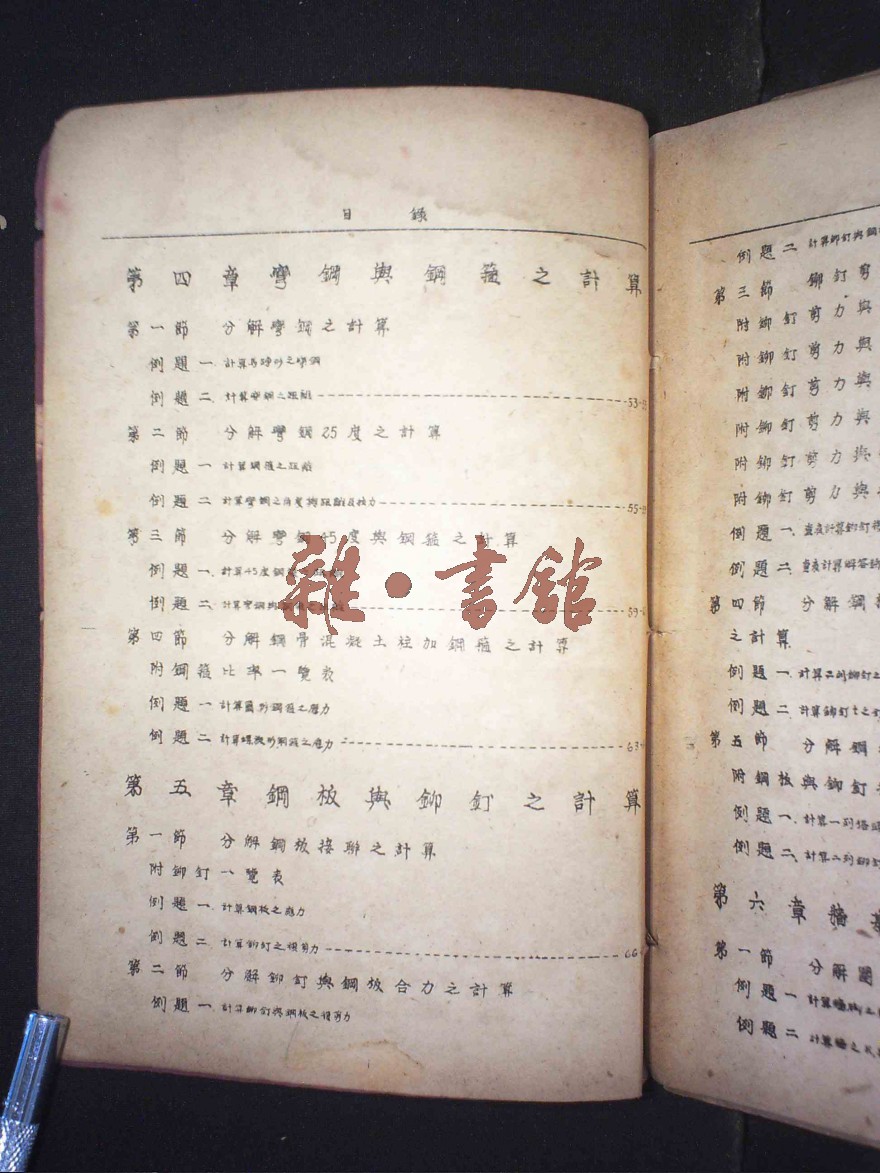 目錄
第四章彎鋼與鋼箍之計算
第一節 分解彎鋼之計算
例題一 計算馬蹄形之彎鋼
例題二、計算彎鋼之距離 53
第二節 分解彎鋼25度之計算
例題一 計算鋼箍之距離
例題二 計算彎鋼之角度與距離及拉力 55
第三節 分解彎鋼45度與鋼箍之計算
例題一、計算45度鋼
例題二、計算彎鋼與 59
第四節 分解鋼骨混凝土柱加鋼箍之計算
附鋼箍比率一覽表
例題一 計算圓形鋼箍之應力
例題二 計算螺旋形鋼箍之應力 63
第五章鋼板與鉚釘之計算
第一節 分解鋼板接聯之計算
附鉚釘一覽表
例題一、計算鋼板之應力
例題二 計算鉚釘之横剪力 66
第二節 分解鉚釘與鋼板合力之計算
例題一、計算鉚釘與鋼板之横剪力
雜·書館
例題二 計算鉚釘與鋼
第三節 鉚釘剪
附鉚釘剪力與
附鉚釘剪力與
附鉚釘剪力與
附鉚釘剪力與
附鉚釘剪力與
附鉚釘剪力與
例題一、查表計算鉚釘
例題二、查表計算
第四節 分解鋼
之計算
例題一、計算二列鉚釘之
例題二 計算鉚釘
第五節 分解鋼
附鋼板與鉚釘
例題一、計算一列搭
例題二、計算二列鉚釘
第六章牆
第一節 分解
例題一 計算牆
例題二 計算牆之